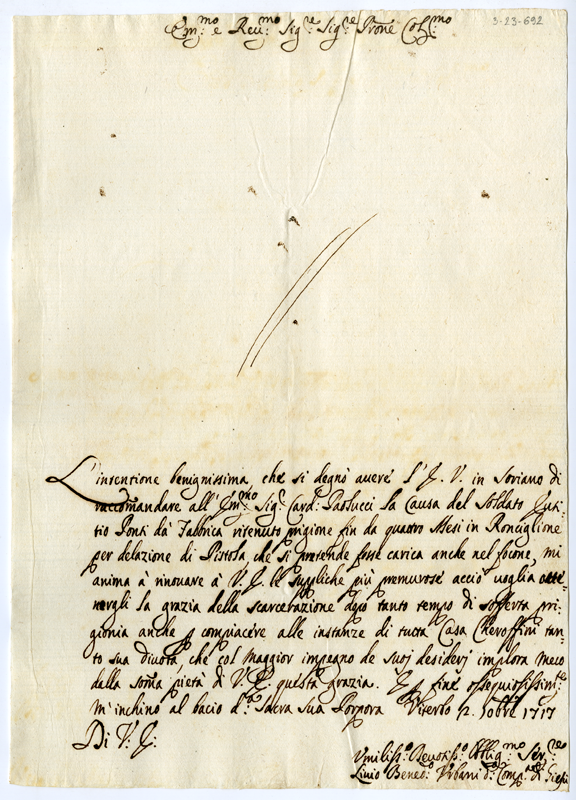 3-23-692
Em:mo e Reu:mo Sig:re Sig:re Prone Col:mo
L'intentione benignissima, che si degnò auere l'E. V. in Soriano di
raccomandare all' Em:mo Sig: Card: Paolucci la Causa del Soldato
tio Ponti da Fabbrica ritenuto prigione fin da quattro Mesi in Ronciglione
per delazione di Pistola che si pretende fosse carica anche nel focone, mi
anima à rinouare à V. E. le suppliche più premurose acciò uoglia otte-
nergli la grazia della scarcerazione dopo tanto tempo di sofferta pri-
gionia anche p compiacere alle instanze di tutta Casa Cheroffini tan-
to sua diuota, che col maggior impegno de suoj desiderj implora meco
della soma pietà di V. E. questa grazia. E p fine ossequiosissim:te
m'inchino al bacio d:a Sacra sua Porpora Viterbo 12. 1717
Di V: E:
Vmiliss:o Deuotiss:o Obblig:mo Ser:re
Liuio Bened:o Vrbani d: Comp:a di Giesù